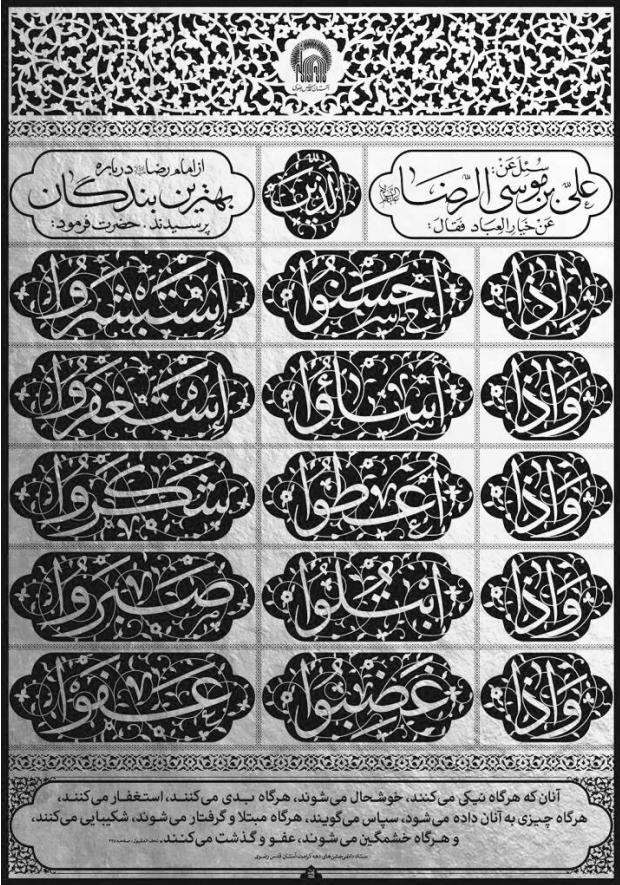 آستان قدس رضوی
سُئِلَ عَنْ:
علیّ بن موسی الرّضا علیه‌السلام
عَنْ خیار العِباد فَقالَ:
الّذینَ
از امام رضا درباره
بهترین بندگان
پرسیدند. حضرت فرمود:
إذا أحسَنُوا إستَبشَروُا
وَإذا أساؤُا إستَغفَروُا
وَإذا أُعطُوا شَکَروُا
وَإذا ابْتُلُوا صَبَروُا
وَإذا غَضِبُوا عَفَوا
آنان که هرگاه نیکی می‌کنند، خوشحال می‌شوند، هرگاه بدی می‌کنند، استغفار می‌کنند،
هرگاه چیزی به آنان داده می‌شود، سپاس می‌گویند، هرگاه مبتلا و گرفتار می‌شوند، شکیبایی می‌کنند،
و هرگاه خشمگین می‌شوند، عفو و گذشت می‌کنند.